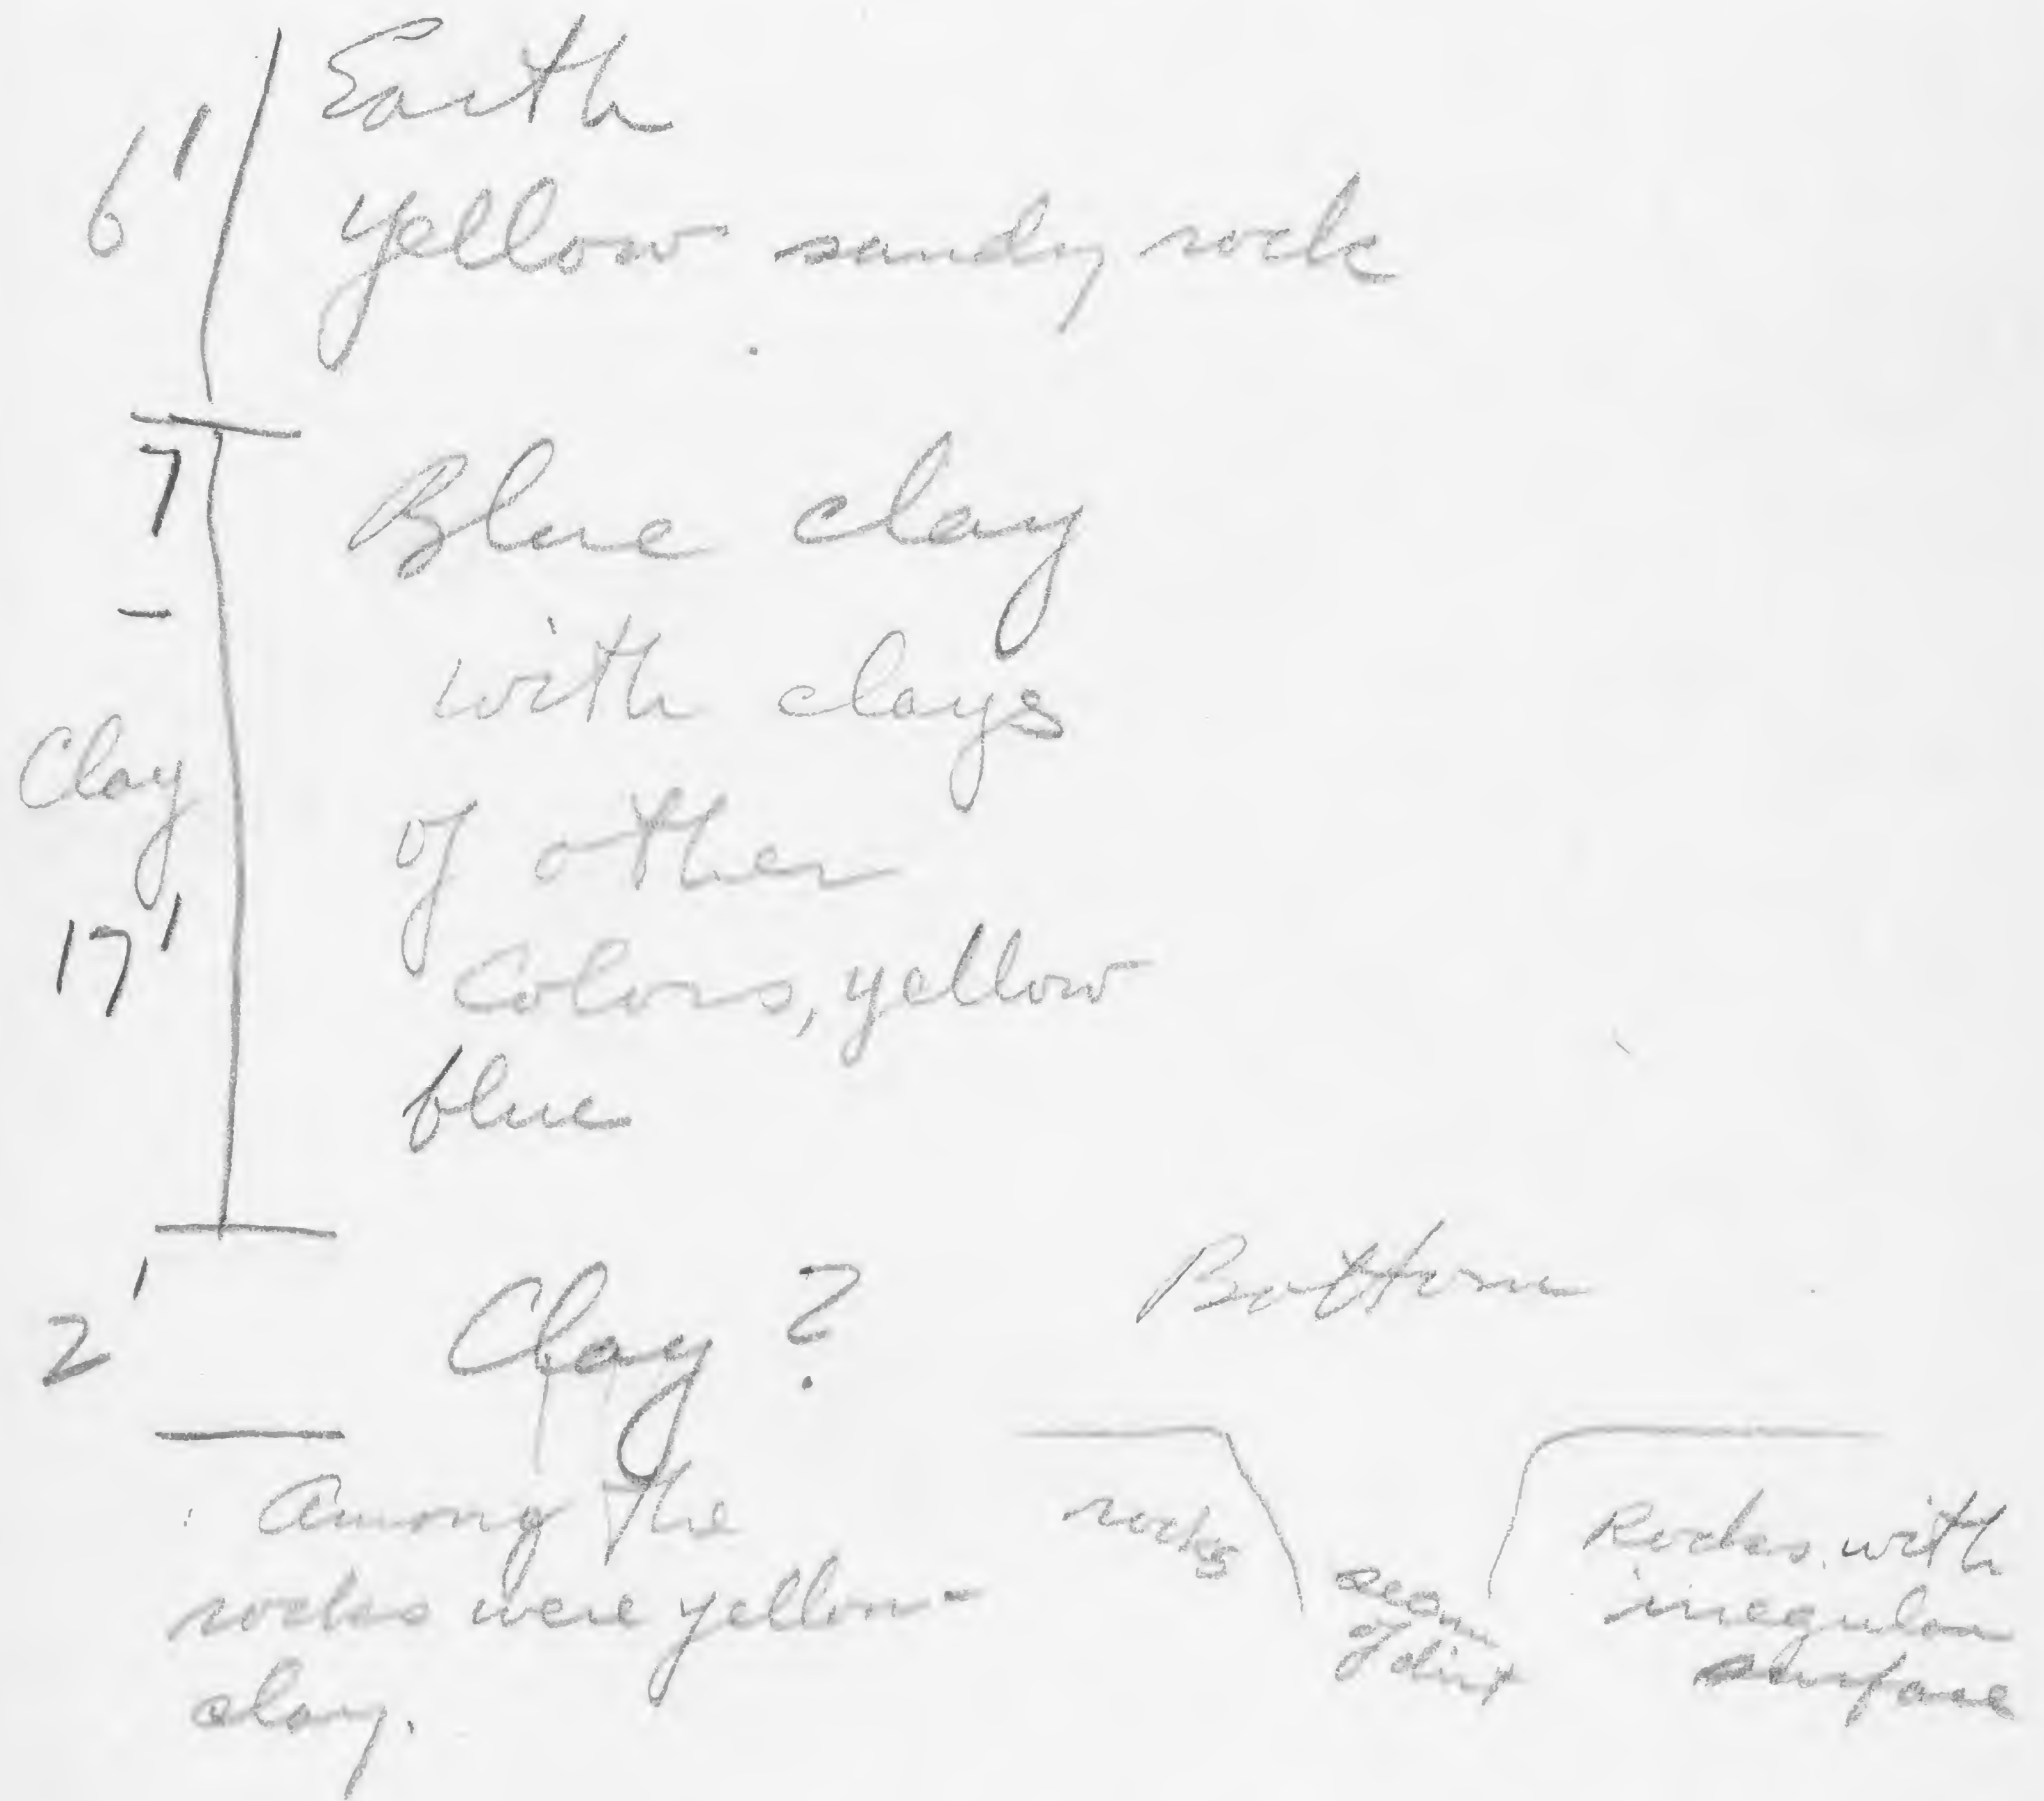 Earth
6'
yellow sandy rock
7
Blue clay
-
with clays
Clay
of other
17'
Colors, yellow
blue
2'
Clay ?
Among the
rocks were yellow-
clay.
Bottom
rocks
seam
of dirt
Rocks with
irregular
surface